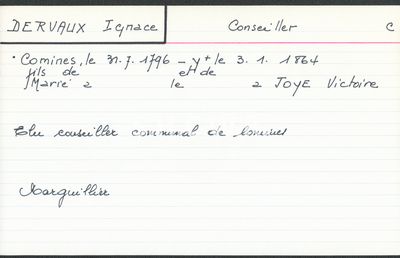 DERVAUX Ignace Conseiller C
° Comines, le 31.7.1796 - y + le 3. 1. 1864
fils de et de
Marié à le à JOYE Victoire
Elu conseiller communal de Comines
Marguillier